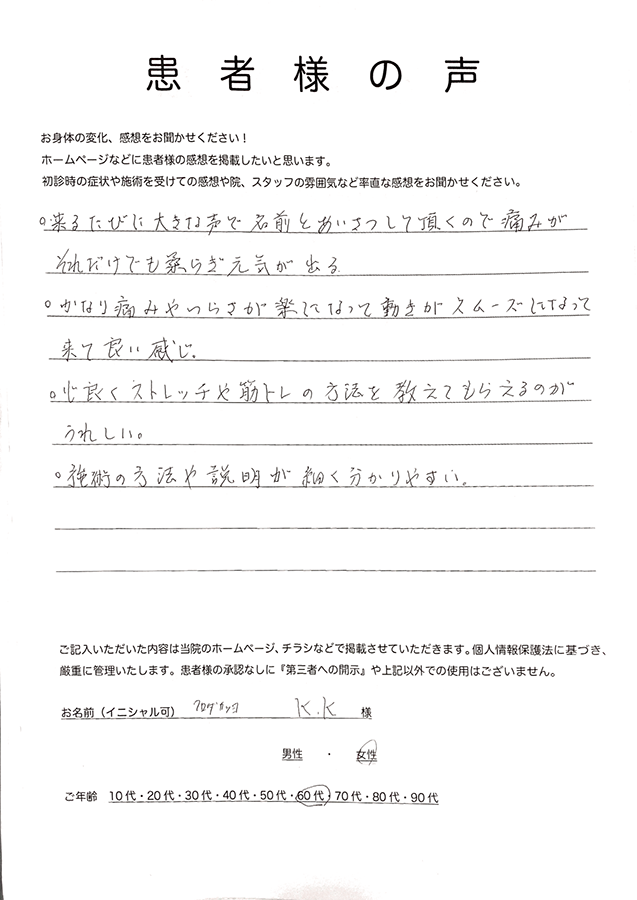 患者様の声
お身体の変化、感想をお聞かせください！
ホームページなどに患者様の感想を掲載したいと思います。
初診時の症状や施術を受けての感想や院、スタッフの雰囲気など率直な感想をお聞かせください。
○来るたびに大きな声で名前とあいさつして頂くので痛みが
それだけでも柔らぎ元気が出る
○かなり痛みやつらさが楽になって動きがスムーズになって
来て良い感じ。
○心良くストレッチや筋トレの方法を教えてもらえるのが
うれしい。
○施術の方法や説明が細く分かりやすい。
ご記入いただいた内容は当院のホームページ、チラシなどで掲載させていただきます。個人情報保護法に基づき、
厳重に管理いたします。患者様の承認なしに『第三者への開示』や上記以外での使用はございません。
お名前（イニシャル可） K.K 様
男性 ・ 女性
ご年齢 10代・20代・30代・40代・50代・60代・70代・80代・90代